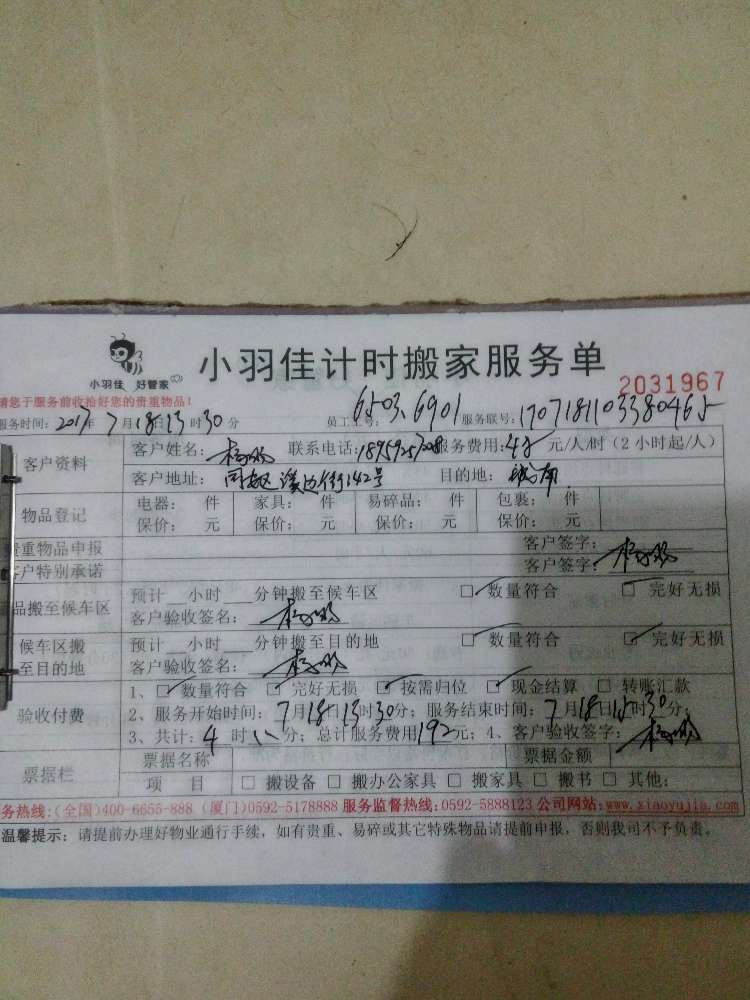 小羽佳 好管家
小羽佳计时搬家服务单
2031967
请您于服务前收拾好您的贵重物品！
服务时间：2017年7月18日13时30分 员工工号：6503.6901 服务联号：1707181103380465
客户资料 客户姓名： 联系电话： 服务费用：48元/人/时（2小时起/人）
客户地址：同安区溪边街142号 目的地：城南
物品登记 电器： 件 家具： 件 易碎品： 件 包裹： 件
保价： 元 保价： 元 保价： 元 保价： 元
贵重物品申报 客户签字：
客户特别承诺 客户签字：
品搬至候车区 预计 小时 分钟搬至候车区 □数量符合 □完好无损
客户验收签名：
候车区搬至目的地 预计 小时 分钟搬至目的地 □数量符合 □完好无损
客户验收签名：
验收付费 1、□数量符合 □完好无损 □按需归位 □现金结算 □转账汇款
2、服务开始时间：7月18日13时30分；服务结束时间：7月18日15时30分；
3、共计：4时 分；总计服务费用192元；4、客户验收签字：
票据栏 票据名称 票据金额
项 目 □搬设备 □搬办公家具 □搬家具 □搬书 □其他：
务热线：(全国)400-6655-888 (厦门)0592-5178888 服务监督热线：0592-5888123 公司网站：www.xiaoyujia.com
温馨提示：请提前办理好物业通行手续，如有贵重、易碎或其它特殊物品请提前申报，否则我司不予负责。